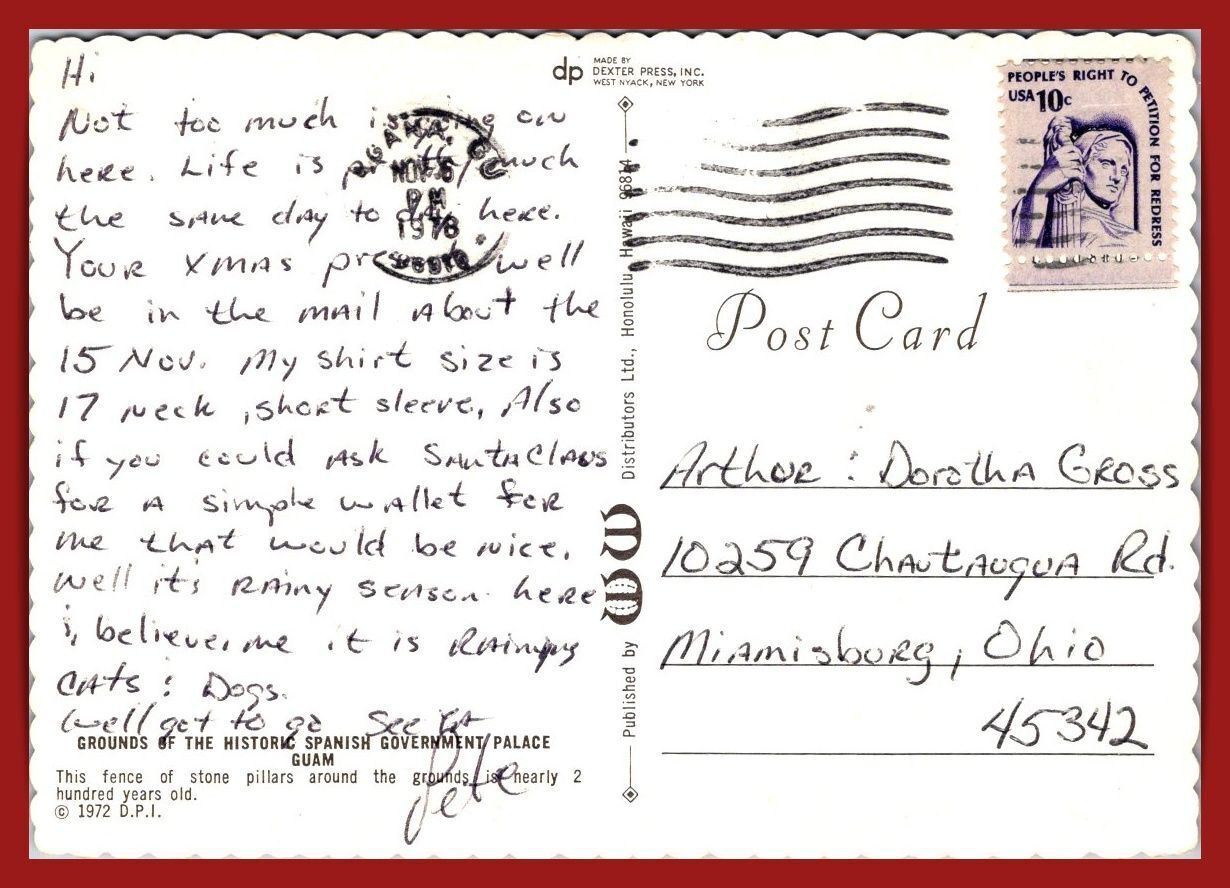 Hi
Not too much is going on
here. Life is pretty much
the same day to day here.
Your Xmas present well
be in the mail about the
15 Nov. My shirt size is
17 neck, short sleeve, Also
if you could ask SantaClaus
for a simple wallet for
me that would be nice.
Well it's rainy season here
&, believe, me it is Raining
cats & Dogs.
Well got to go See Ya
Pete
GROUNDS OF THE HISTORIC SPANISH GOVERNMENT PALACE
GUAM
This fence of stone pillars around the grounds is nearly 2
hundred years old.
© 1972 D.P.I.
dp MADE BY
DEXTER PRESS, INC.
WEST NYACK, NEW YORK
Published by Distributors Ltd., Honolulu, Hawaii
AGANA, GU
NOV 6
PM
1978
PEOPLE'S RIGHT TO PETITION FOR REDRESS
USA 10c
Post Card
Arthur & Dorotha Gross
10259 Chautauqua Rd.
Miamisburg, Ohio
45342